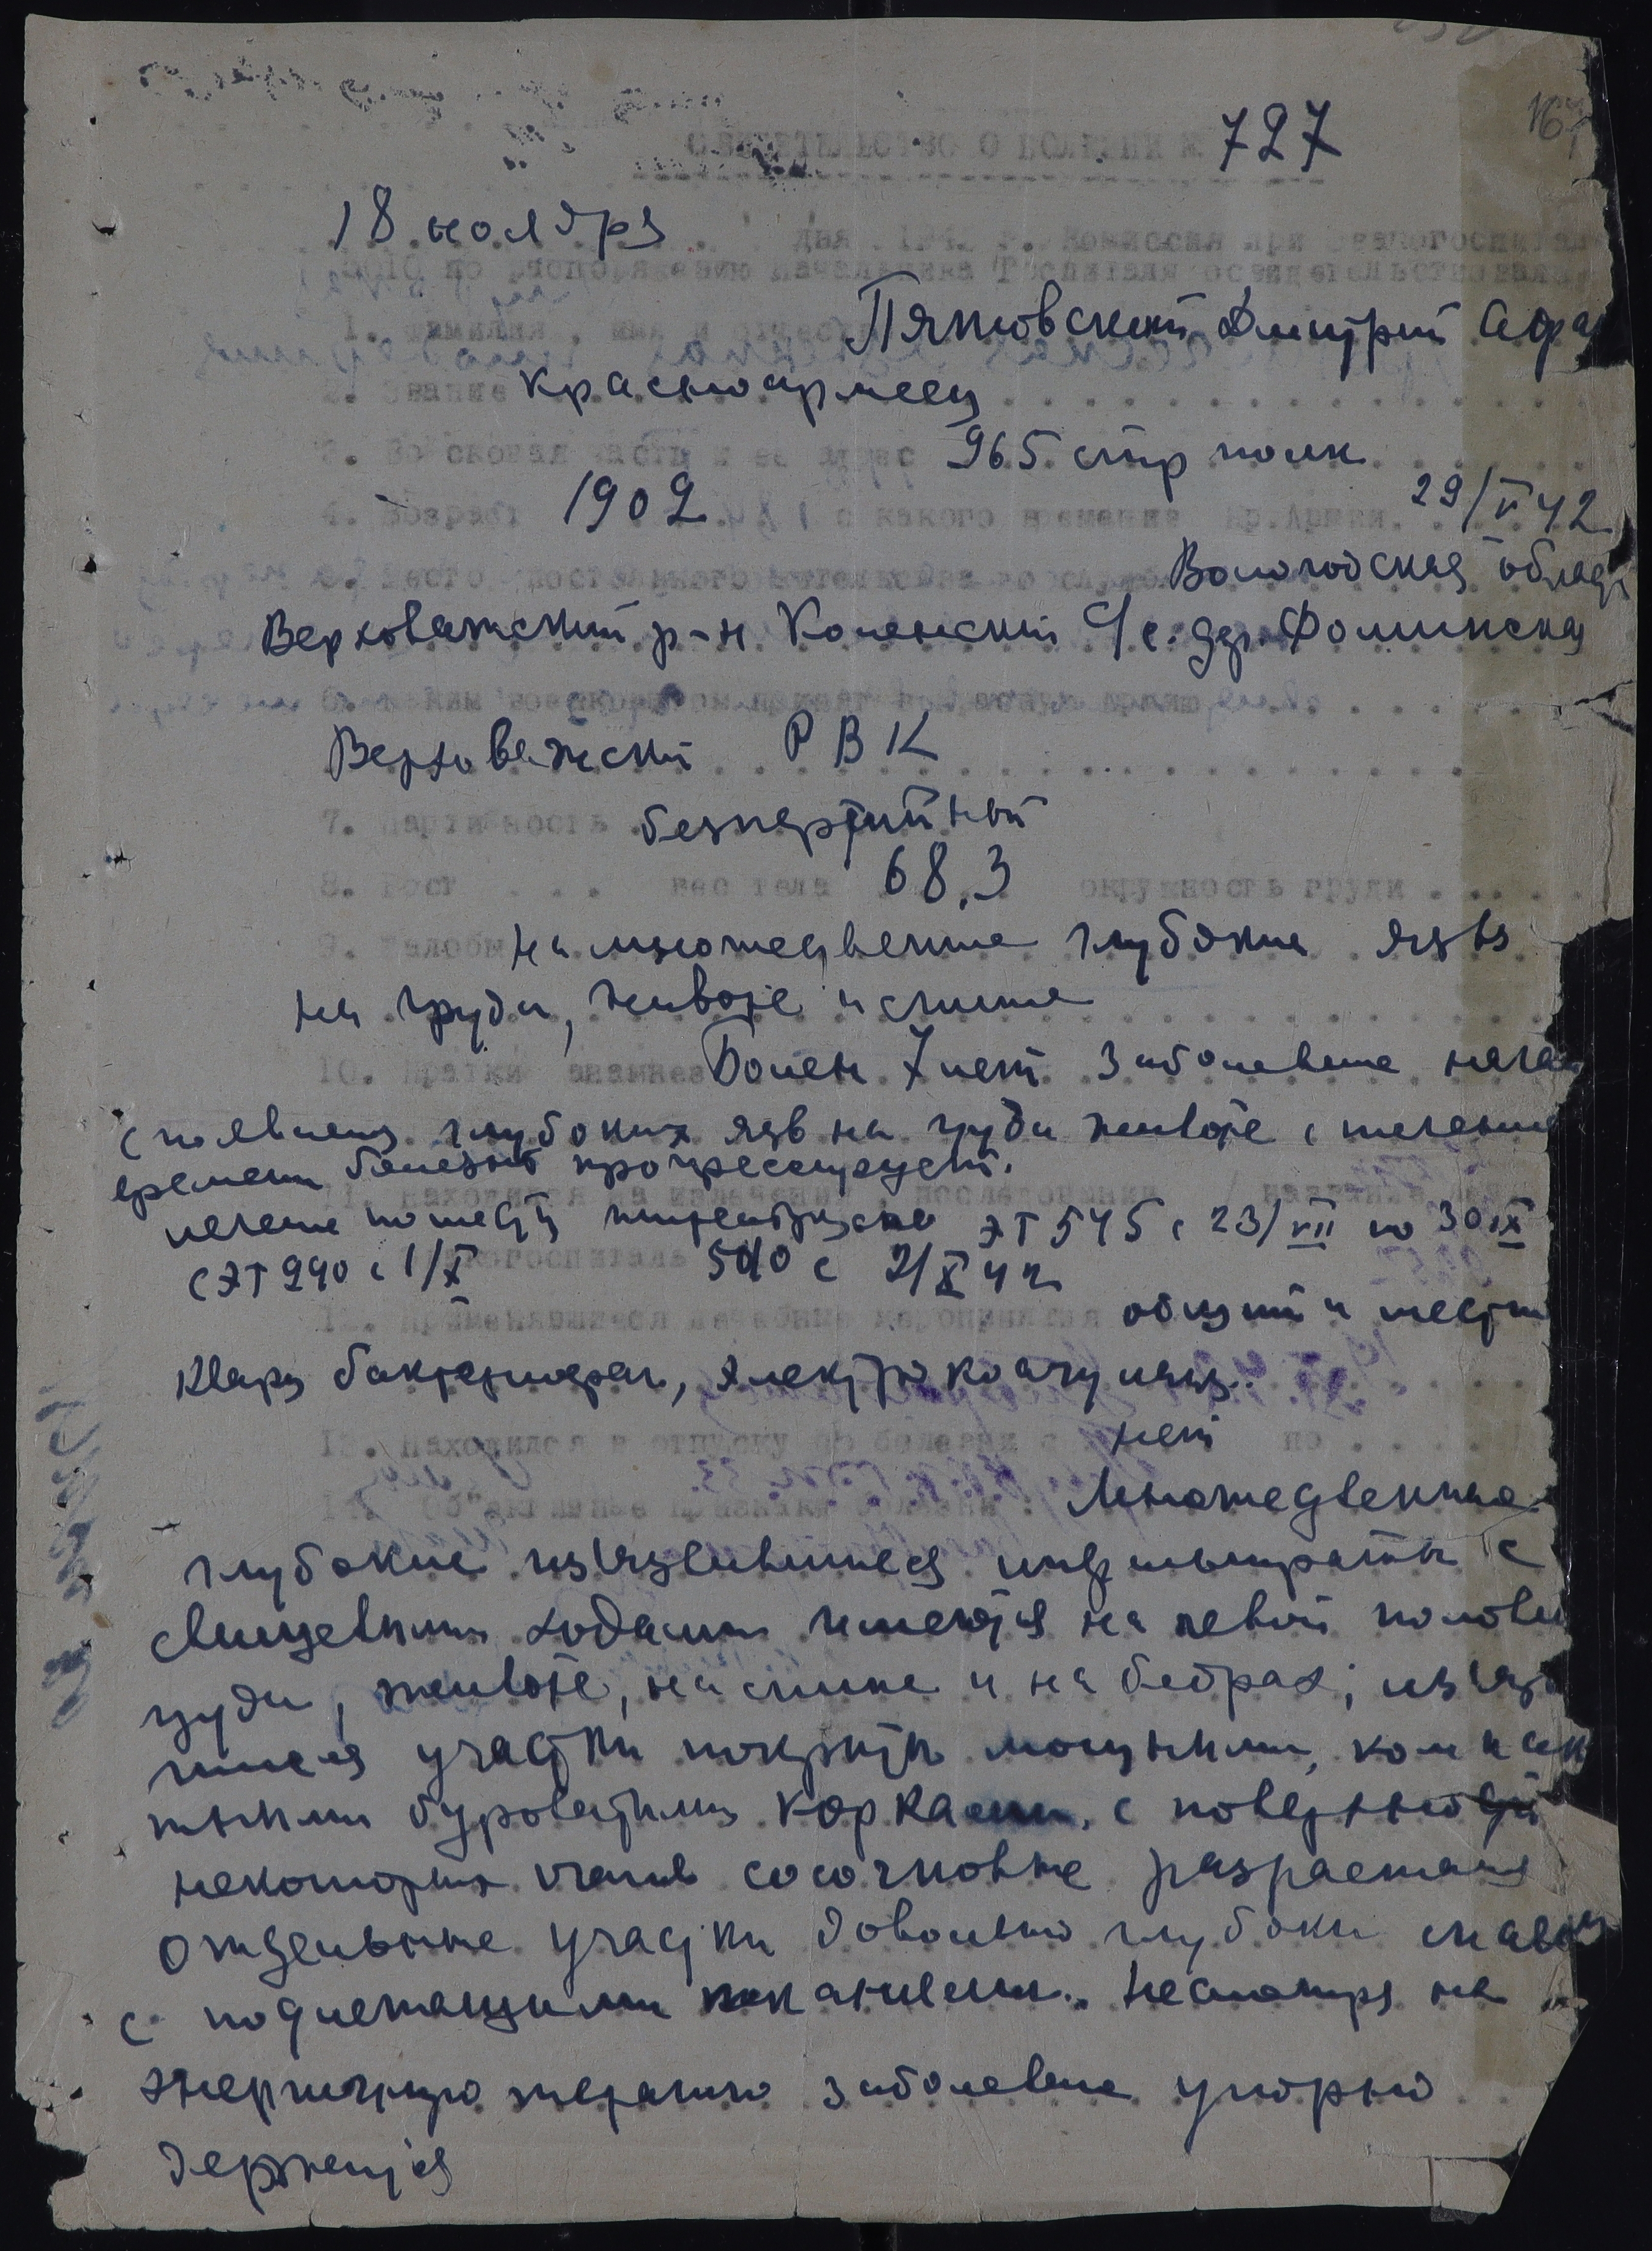 СВИДЕТЕЛЬСТВО О БОЛЕЗНИ № 727
18 ноября дня 194 г. Комиссия при эвакогоспитал
по распоряжению Начальника Госпиталя освидетельствовала
1. Фамилия, имя и отчество Дмитрий
2. Звание Красноармеец
3. Войсковая часть и ее адрес 965 стр полк
4. Возраст 1902 с какого времени в Кр.Армии. 29/VI 42
5. Место постоянного жительства до службы Вологодская обла
Верховажский р-н с/с. дер. Фоминская
6. Каким военкоматом призван в Красную Армию
Верховажский РВК
7. Партийность безпартийный
8. Рост . . . вес тела 68,3 окружность груди . . . .
9. Жалобы на множественные глубокие язвы
на груди, животе и спине
10. Краткий анамнез Болен 7 лет Заболевание нача
с появления глубоких язв на груди животе с течением
времени болезнь прогрессирует.
11. Находился на излечении, исследовании / название
лечение ЭТ 545 с 23/VII по 30 IX
СЭТ 290 с 1/X эвакогоспиталь с 2/X 42
12. Применявшиеся лечебные мероприятия общий и местн
Кварц бактериофаг, электрокоагуляция.
13. Находился в отпуску по болезни с нет по . . . .
14. Объективные признаки болезни: Множественные
глубокие изъязвившиеся инфильтраты с
свищевыми ходами имеются на левой полови
груди, животе, на спине и на бедрах; изъязв
шиеся участки покрыты мощными, компак
тными буроватыми корками, с поверхностй
некоторых сосочковые разрастания
Отдельные участки довольно глубоки
с подлежащими тканями. Несмотря на
энергичную терапию заболевание упорно
держится